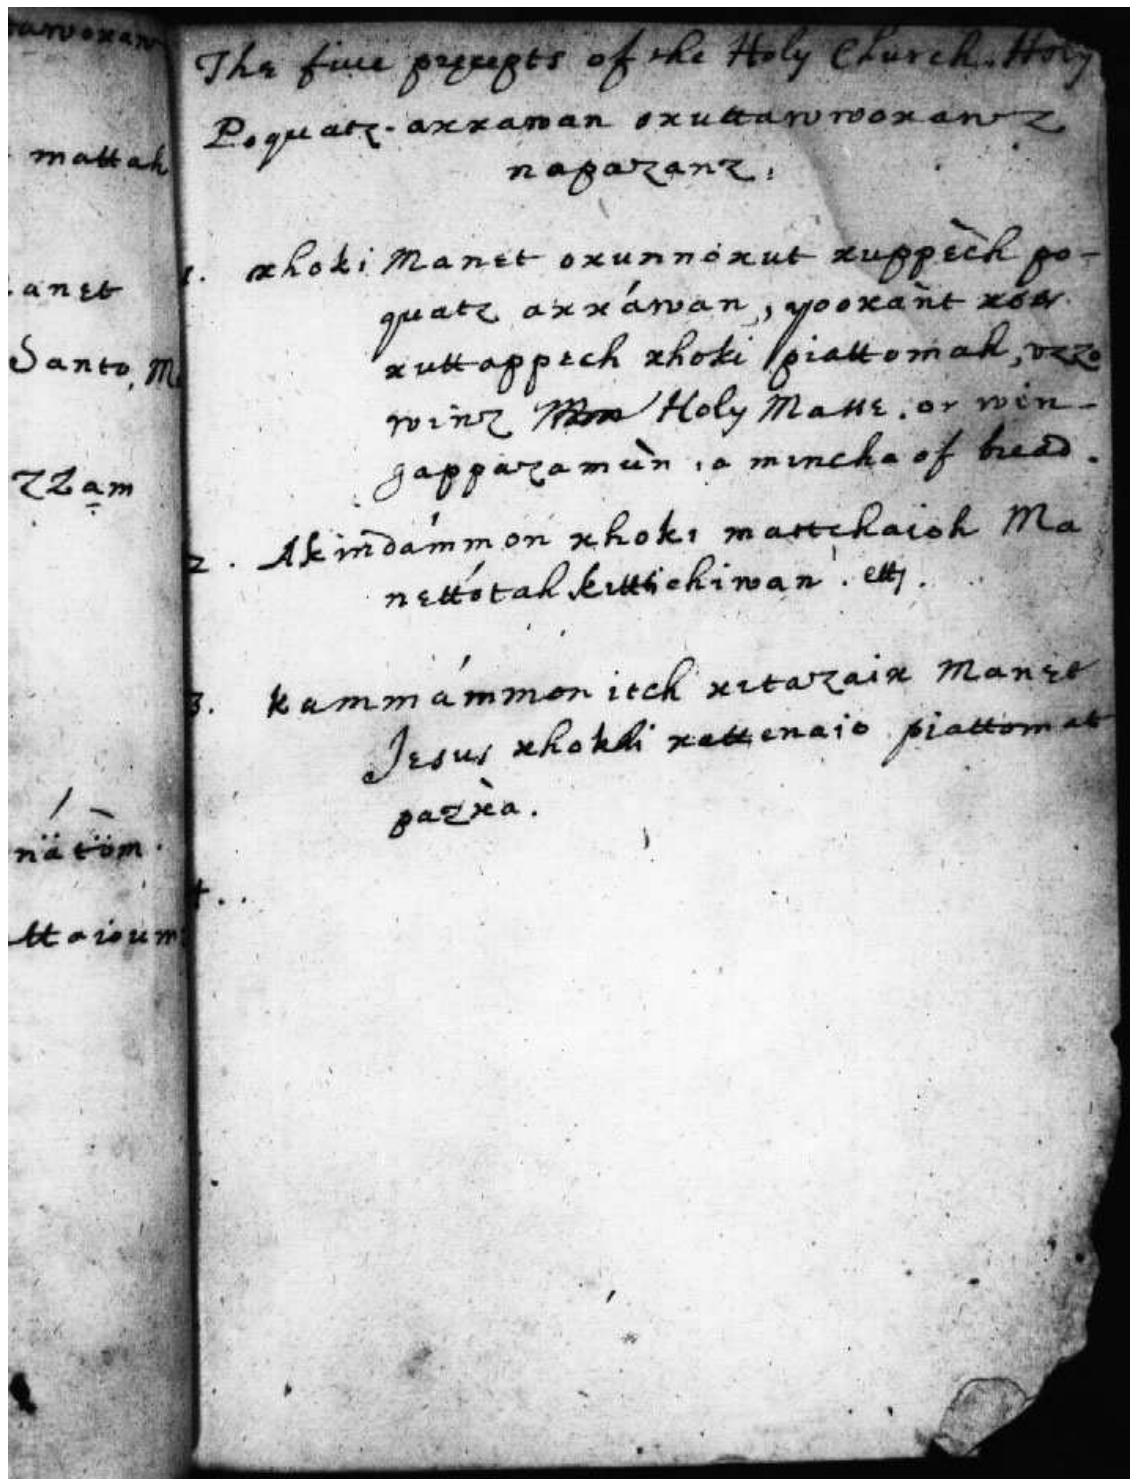 awoxaw
mattah
anet
Santo, M
zzam
nätöm.
ttaioum
The five precepts of the Holy Church. Holy
Poquatz-axxawan oxuttawwoxawz
napazanz.
1. xhoki Manet oxunnóxut xuppèch po-
quatz axxáwan, yooxànt
xuttappech xhoki piattomah, uzzo
winz Holy Masse. or win-
jappazamùn, a mincha of bread.
2. Akindámmon xhoki mattchaioh Ma
nettótah kittichiwan. etc.
3. kammámmon itch xitazaix Manet
Jesus xhokdi xattenaio piattomat
pazxèa.
4..